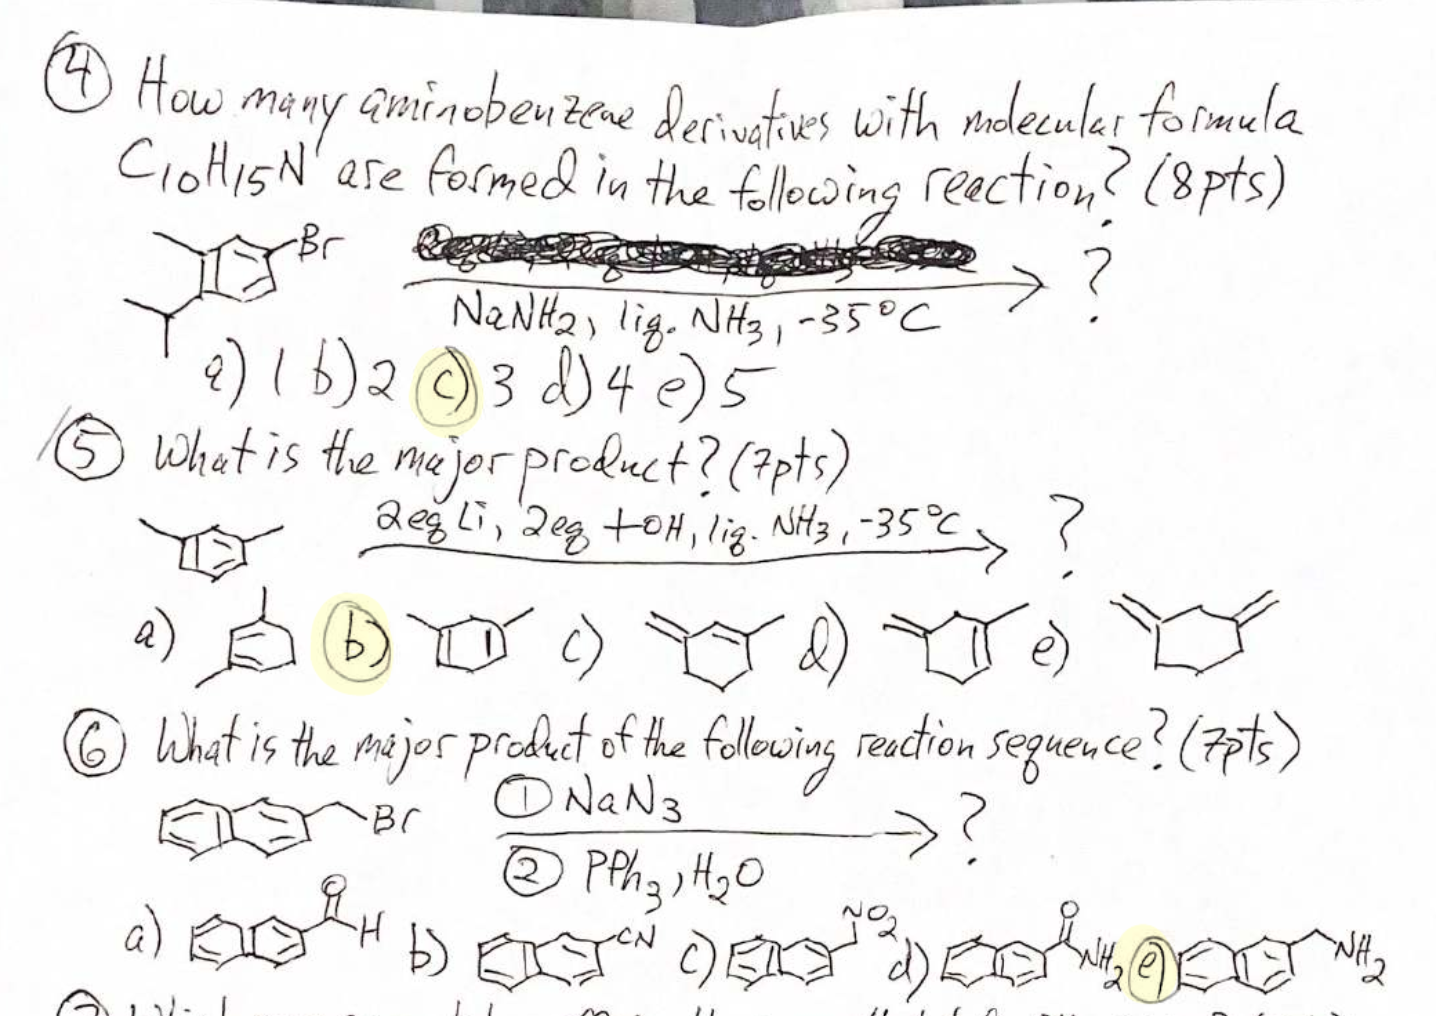 ④ How many aminobenzene derivatives with molecular formula
C10H15N are formed in the following reaction? (8pts)
Br
NaNH2, liq. NH3, -35°C
?
a) 1 b) 2 c) 3 d) 4 e) 5
⑤ What is the major product? (7pts)
2eq Li, 2eq +OH, liq. NH3, -35°C
?
a) b) c) d) e)
⑥ What is the major product of the following reaction sequence? (7pts)
Br
① NaN3
?
② PPh3, H2O
a) O H b) CN c) NO2 d) O NH2 e) NH2